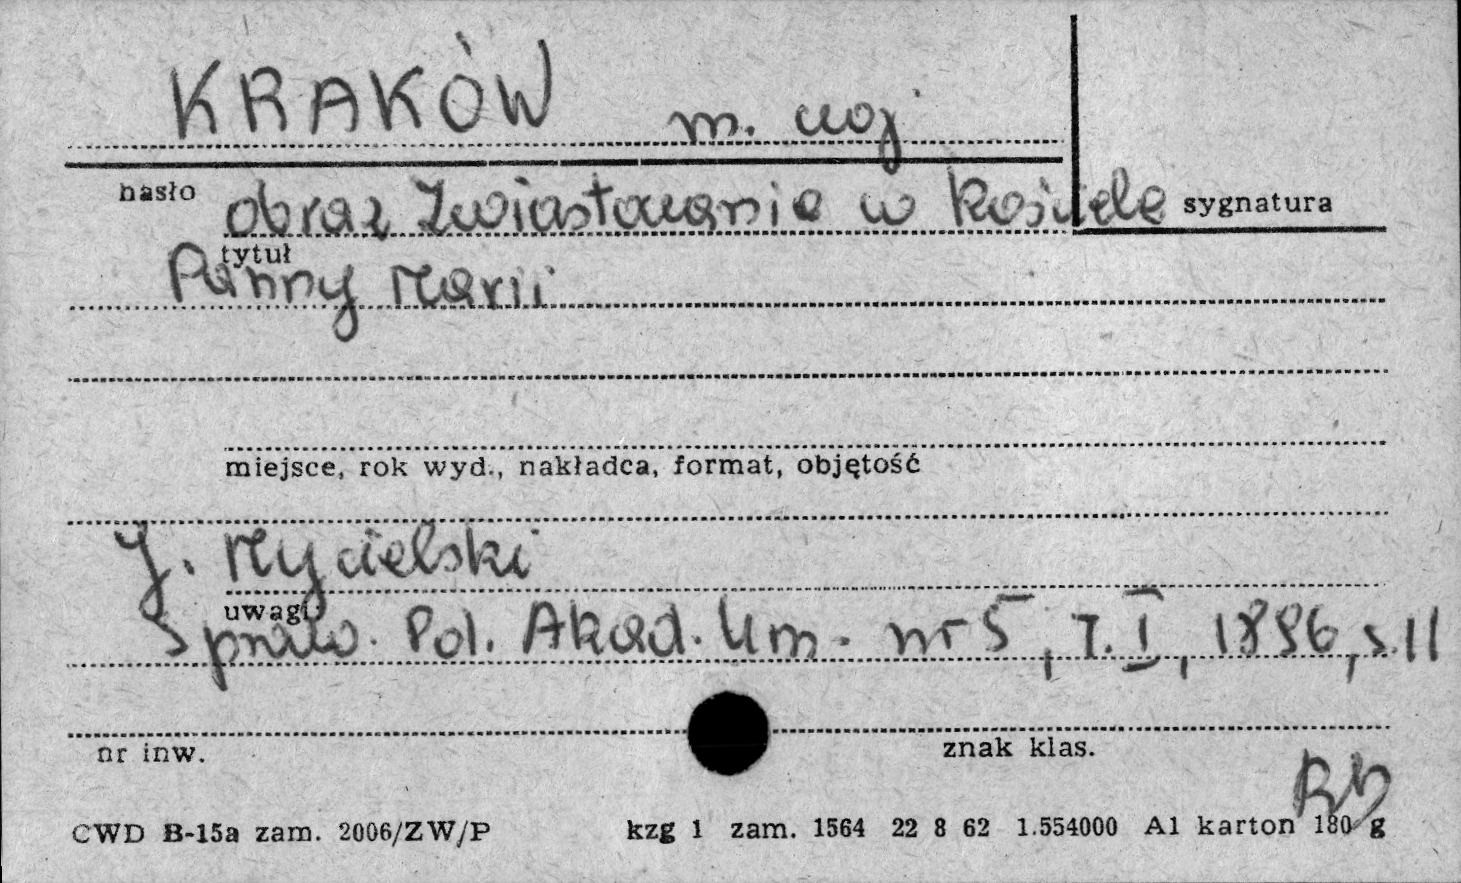 KRAKÓW m. woj
hasło
obraz Zwiastowanie w kościele
sygnatura
tytuł
Panny Marii
miejsce, rok wyd., nakładca, format, objętość
J. Mycielski
uwagi
Spraw. Pol. Akad. Um. nr 5, T. I, 1896, s. 11
nr inw.
znak klas.
CWD B-15a zam. 2006/ZW/P kzg 1 zam. 1564 22 8 62 1.554000 A1 karton 180 g